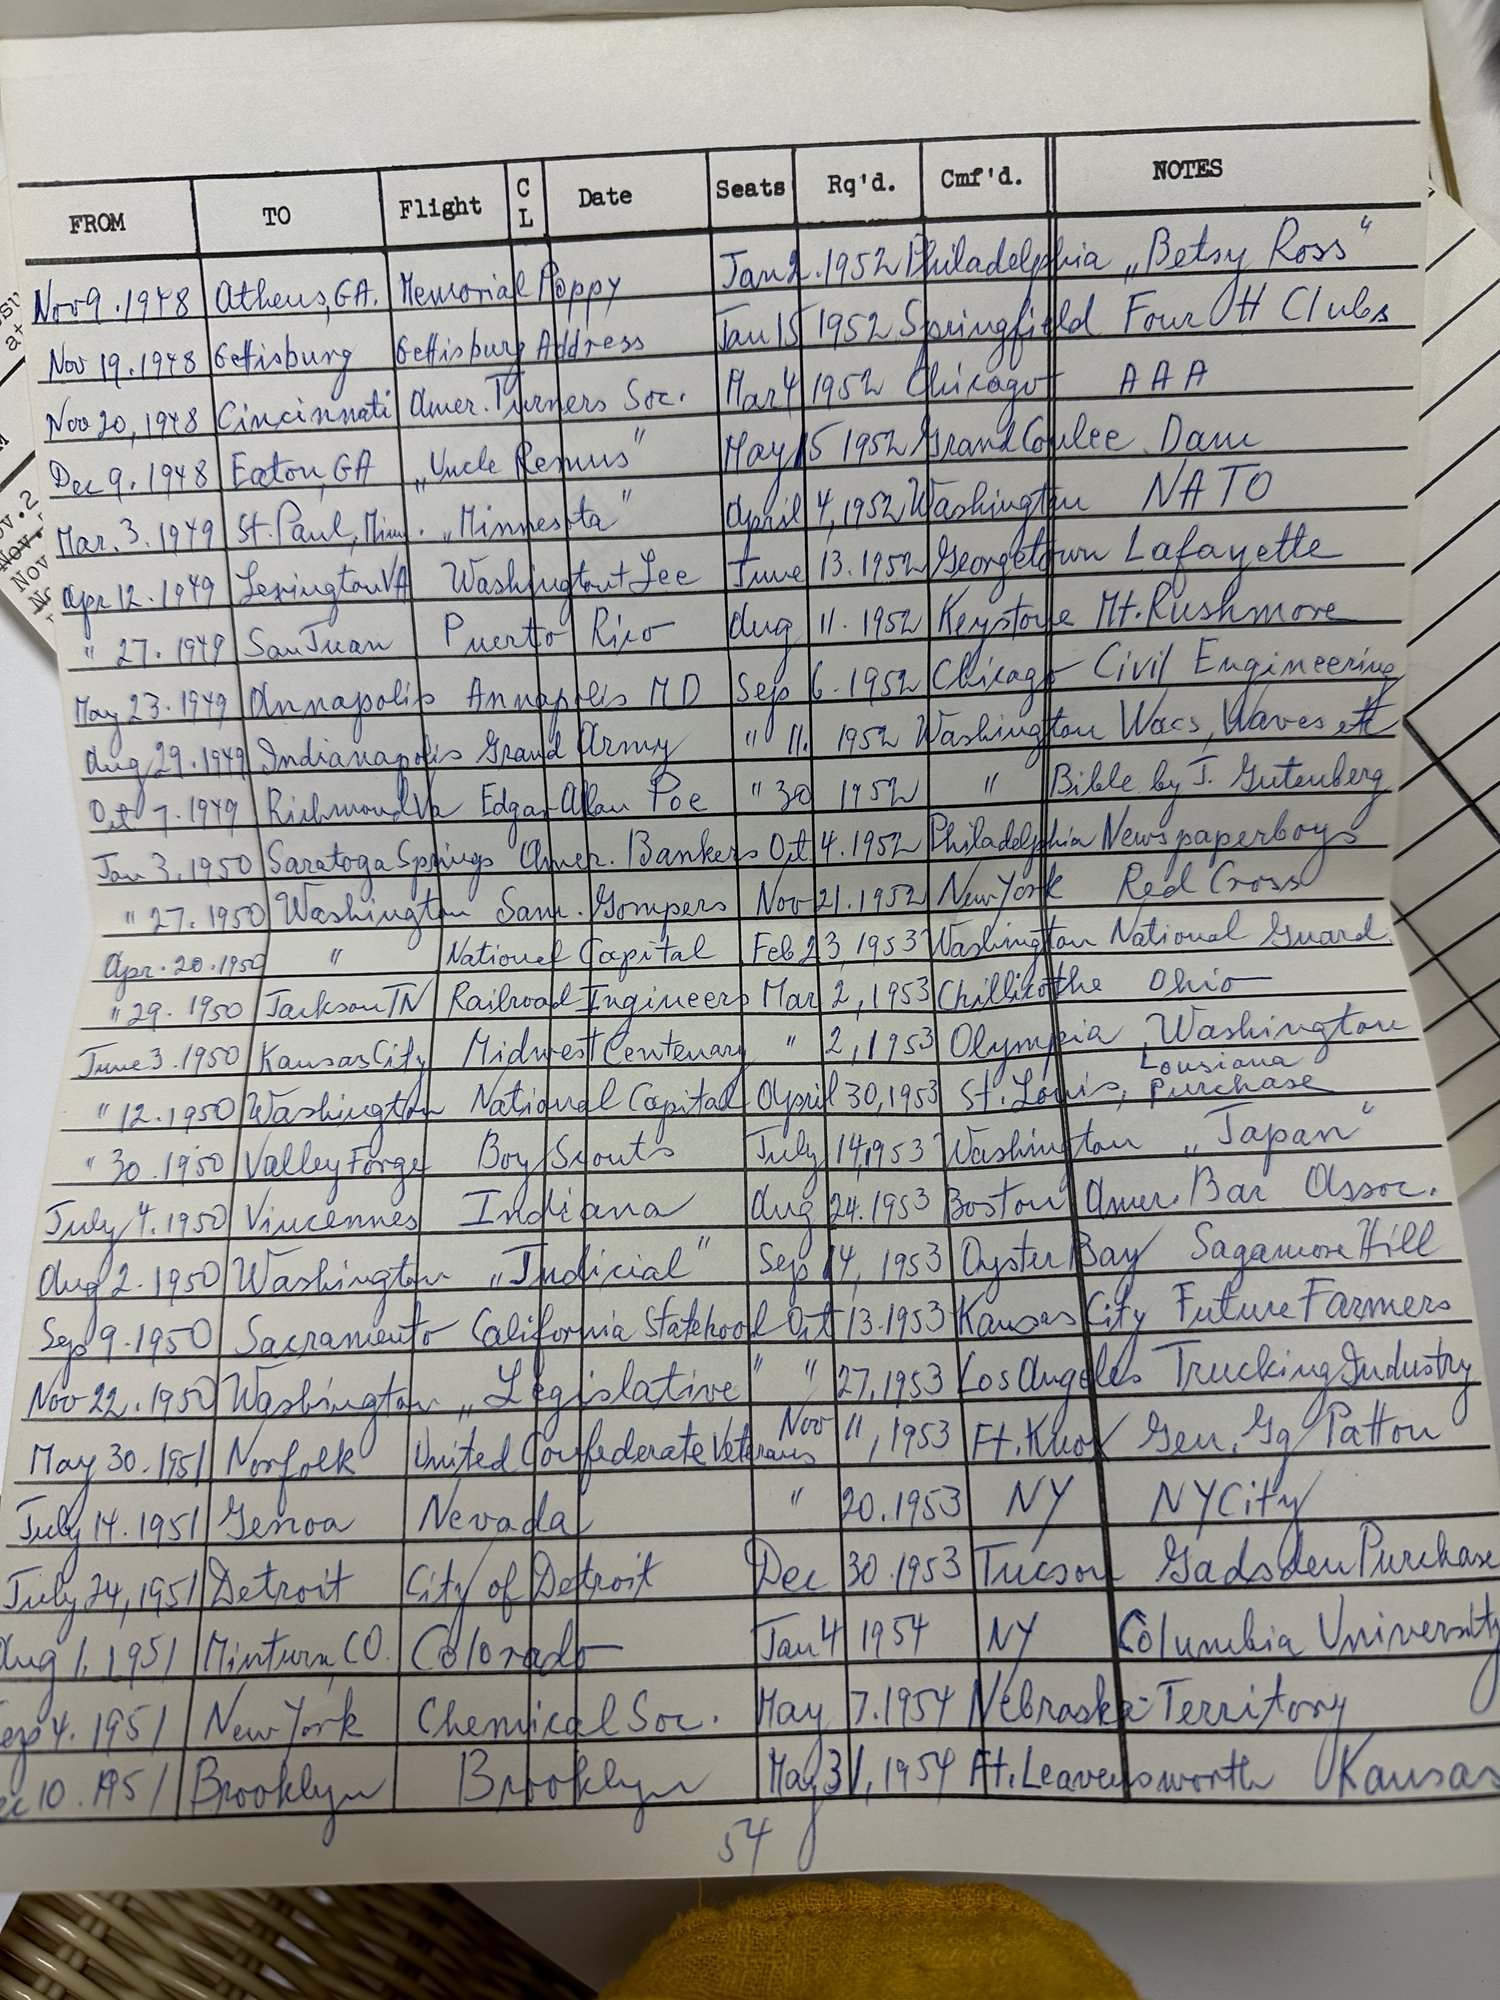 FROM TO Flight CL Date Seats Rq'd. Cmf'd. NOTES
Nov 9. 1948 Athens, GA. Memorial Poppy Jan 2. 1952 Philadelphia „Betsy Ross"
Nov 19. 1948 Gettisburg Gettisburg Address Jan 15 1952 Springfield Four H Clubs
Nov 20, 1948 Cincinnati Amer. Turners Soc. Mar 4 1952 Chicago AAA
Dec 9. 1948 Eaton, GA „Uncle Remus" May 15 1952 Grand Coulee Dam
Mar. 3. 1949 St. Paul, Minn. „Minnesota" April 4, 1952 Washington NATO
Apr 12. 1949 Lexington VA Washington + Lee June 13. 1952 Georgetown Lafayette
" 27. 1949 San Juan Puerto Rico Aug 11. 1952 Keystone Mt. Rushmore
May 23. 1949 Annapolis Annapolis MD Sep 6. 1952 Chicago Civil Engineering
Aug 29. 1949 Indianapolis Grand Army " 11. 1952 Washington Wacs, Waves ett
Oct 7. 1949 Richmond Va Edgar Allan Poe " 30 1952 " Bible by J. Gutenberg
Jan 3. 1950 Saratoga Springs Amer. Bankers Oct 4. 1952 Philadelphia Newspaperboys
" 27. 1950 Washington Sam. Gompers Nov 21. 1952 New York Red Cross
Apr. 20. 1950 " National Capital Feb 23, 1953 Washington National Guard
" 29. 1950 Jackson TN Railroad Ingineers Mar 2, 1953 Chillicothe Ohio
June 3. 1950 Kansas City Midwest Centenary " 2, 1953 Olympia, Washington
" 12. 1950 Washington National Capital April 30, 1953 St. Louis, Lousiana Purchase
" 30. 1950 Valley Forge Boy Scouts July 14, 1953 Washington „Japan"
July 4. 1950 Vincennes Indiana Aug 24. 1953 Boston Amer. Bar Assoc.
Aug 2. 1950 Washington „Judicial" Sep 14, 1953 Oyster Bay Sagamore Hill
Sep 9. 1950 Sacramento California Statehood Oct 13. 1953 Kansas City Future Farmers
Nov 22. 1950 Washington „Legislative" " 27. 1953 Los Angeles Trucking Industry
May 30. 1951 Norfolk United Confederate Veterans Nov 11, 1953 Ft. Knox Gen. Gg Patton
July 14. 1951 Genoa Nevada " 20. 1953 NY NYCity
July 24, 1951 Detroit City of Detroit Dec 30. 1953 Tucson Gadsden Purchase
Aug 1. 1951 Minturn, CO. Colorado Jan 4 1954 NY Columbia University
Sep 4. 1951 New York Chemical Soc. May 7. 1954 Nebraska Territory
10. 1951 Brooklyn Brooklyn May 31, 1954 Ft. Leavensworth Kansas
54